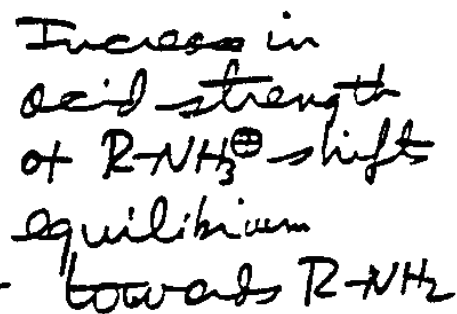 Increase in
acid strength
of R-NH₃⊕ shifts
equilibrium
towards R-NH₂